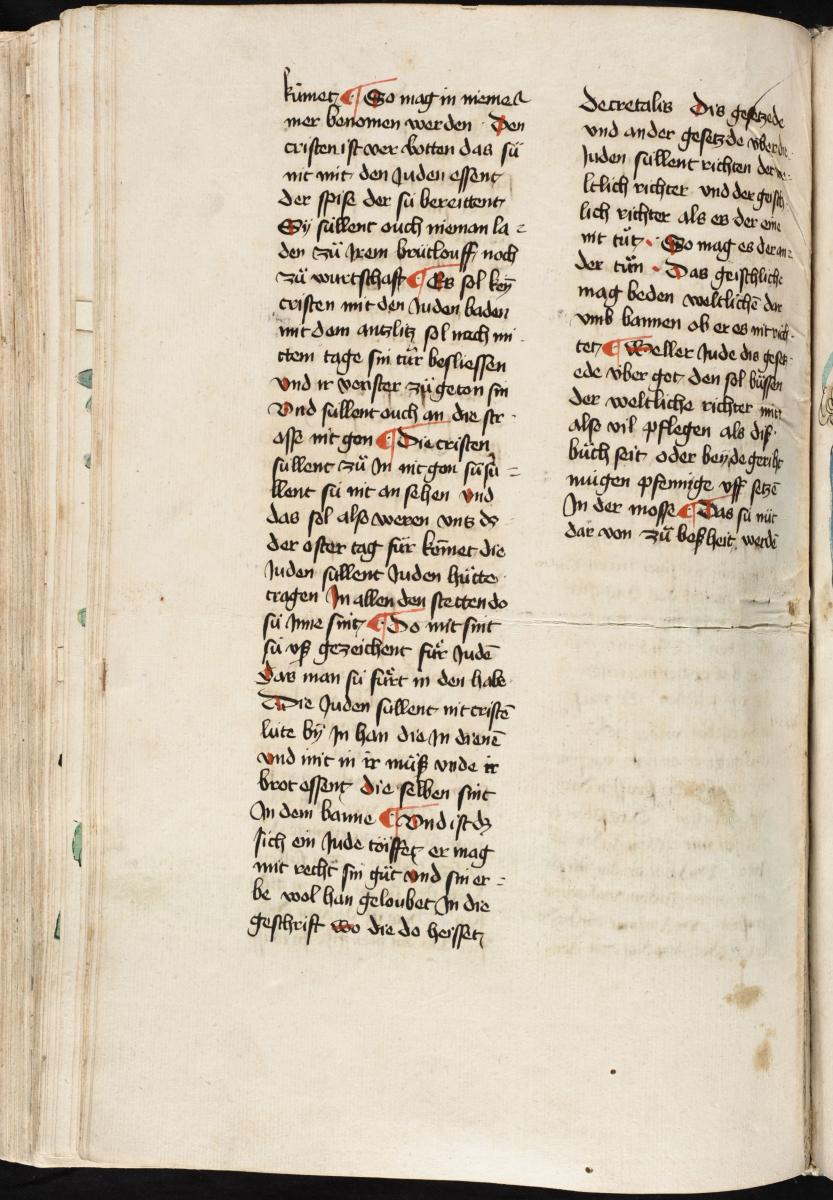 kūmet ¶ So mag in nieme
mer benomen werden · Den
cristen ist ver botten das sú
nit mit den Juden essent
der spise der sú bereittent
Sÿ súllent ouch nieman la =
den zů Jrem brútlouff noch
zů wurtschaft ¶ Es sol keÿ
cristen mit den Juden baden
mit dem antzlitz sol noch mi
ttem tage sin túr besliessen
vnd ir venster zů geton sin
Vnd súllent ouch an die str
osse nit gon ¶ Die cristen
súllent zů Jn nit gon sú sú =
llent sú nit an sehen vnd
das sol also weren vntz dz
der oster tag fúr kōmet die
Juden súllent Juden hútte
tragen Jn allen den stetten do
sú Jnne sint ¶ Do mit sint
sú vß gezeichent fúr Judē
Das man sú fúrt in den habe
Die Juden súllent nit cristē
lúte bÿ Jn han die Jn dienē
vnd mit in ir můß vnde ir
brot essent die selben sint
Jn dem banne ¶ Vnd ist dz
sich ein Jude töiffet er mag
mit recht sin gůt vnd sin er =
be wol han geloubet Jn die
geschrift wo die do heisset
decretalis Dis gesetzede
vnd ander gesetzde vber die
Juden súllent richten der we
ltlich richter vnd der geisch
lich richter als es der eine
nit tůt · So mag es der an =
der tůn · Das geischliche
mag beden weltlichē dar
vmb bannen ob er es nit rich
tet ¶ Weller Jude dis geset
ede vber got den sol bůssen
der weltliche richter mit
also vil pflegen als diß
bůch seit oder beÿde geriht
múgen pfennige vff setzē
Jn der mosse ¶ Das sú nút
dar von zů boßheit werdē